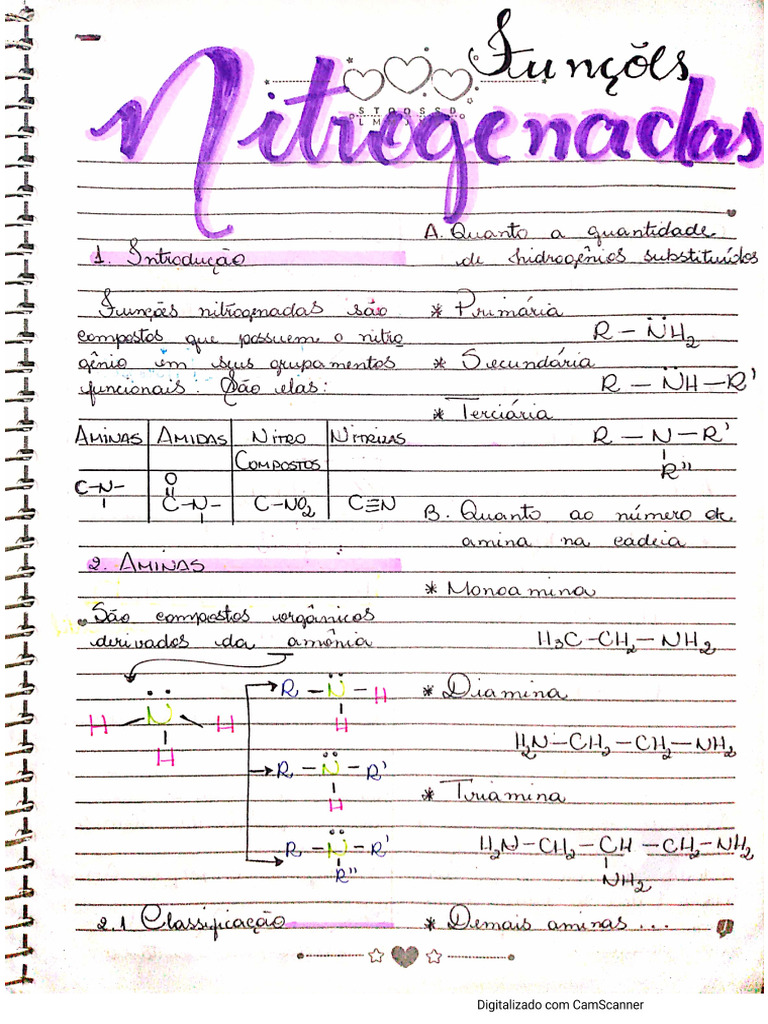 Funções
Nitrogenadas
1. Introdução
Funções nitrogenadas são
compostos que possuem o nitro
gênio em seus grupamentos
funcionais. São elas:
AMINAS | AMIDAS | NITRO COMPOSTOS | NITRILAS
O
C-N- | C-N- | C-NO2 | C≡N
2. AMINAS
São compostos orgânicos
derivados da amônia
H N H
H
R - N - H
H
R - N - R'
H
R - N - R'
R"
2.1 Classificação
A. Quanto a quantidade
de hidrogênios substituídos
* Primária
R - NH2
* Secundária
R - NH - R'
* Terciária
R - N - R'
R"
B. Quanto ao número de
amina na cadeia
* Monoamina
H3C - CH2 - NH2
* Diamina
H2N - CH2 - CH2 - NH2
* Triamina
H2N - CH2 - CH - CH2 - NH2
NH2
* Demais aminas...
1
Digitalizado com CamScanner